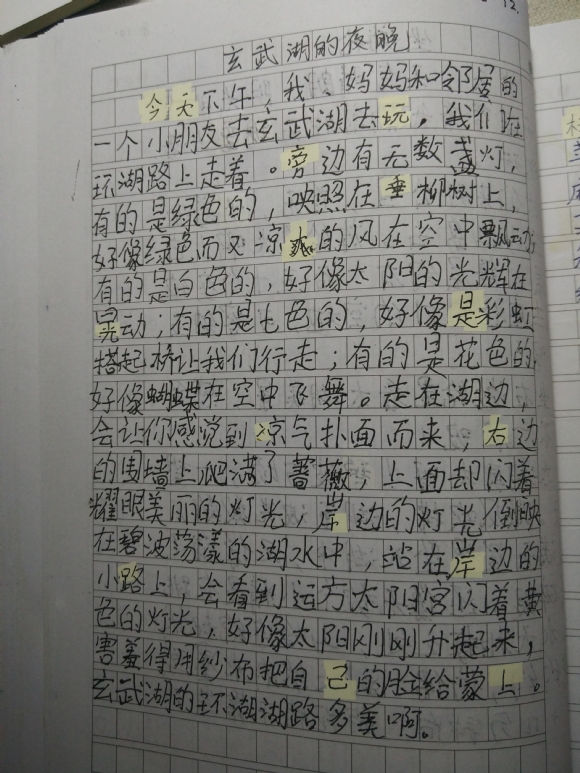 玄武湖的夜晚
今天下午，我、妈妈和邻居的
一个小朋友去玄武湖去玩，我们在
环湖路上走着。旁边有无数盏灯，
有的是绿色的，映照在垂柳树上，
好像绿色而又凉爽的风在空中飘动；
有的是白色的，好像太阳的光辉在
晃动；有的是七色的，好像是彩虹
搭起桥让我们行走；有的是花色的，
好像蝴蝶在空中飞舞。走在湖边，
会让你感觉到凉气扑面而来，右边
的围墙上爬满了蔷薇，上面却闪着
耀眼美丽的灯光，岸边的灯光倒映
在碧波荡漾的湖水中，站在岸边的
小路上，会看到远方太阳宫闪着黄
色的灯光，好像太阳刚刚升起来，
害羞得用纱布把自己的脸给蒙上。
玄武湖的环湖湖路多美啊。